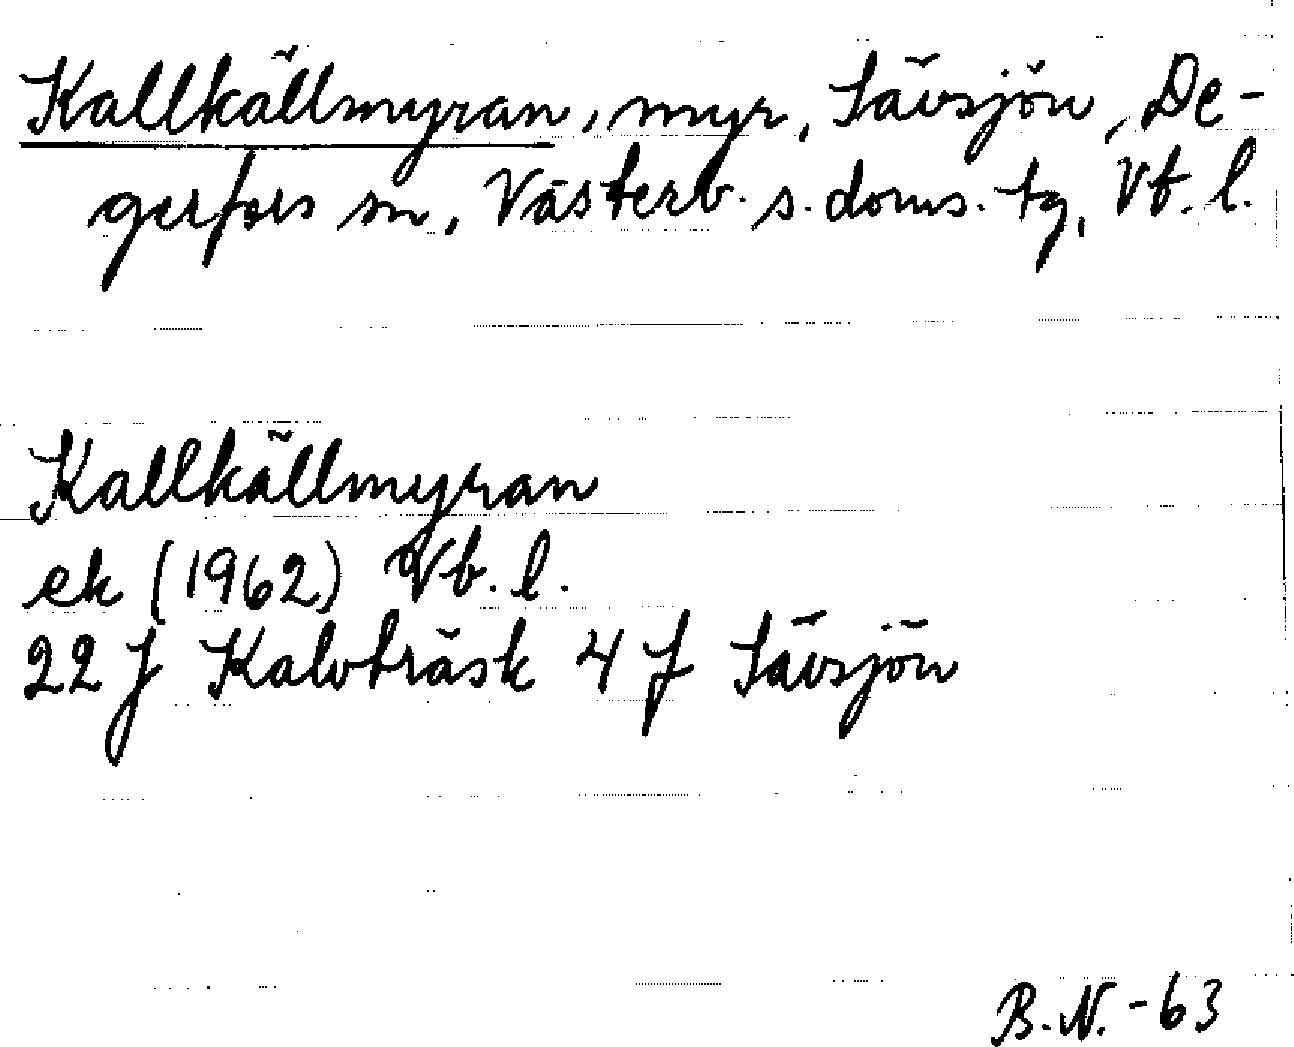 Kallkällmyran, myr, Sävsjön, De-
gerfors sn, Västerb. s. doms. tg, Vb. l.
Kallkällmyran
ek (1962) Vb. l.
22 J Kalvträsk 4 f Sävsjön
B.N. - 63